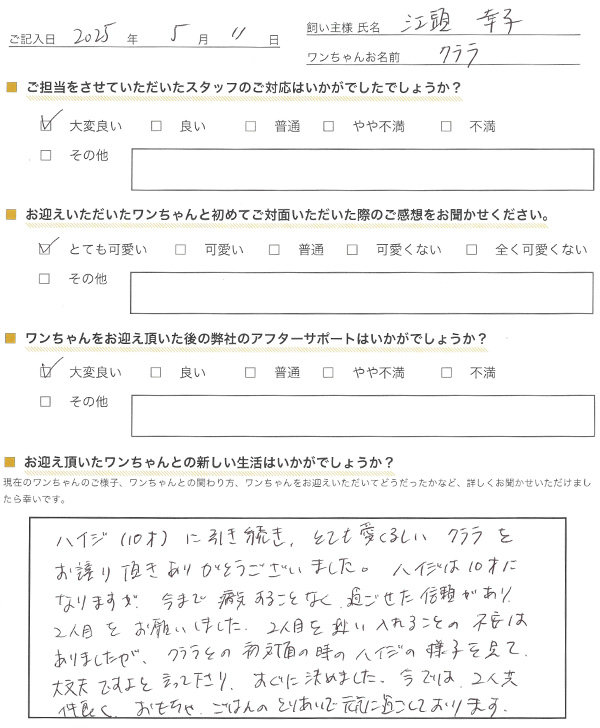 ご記入日 2025 年 5 月 11 日
飼い主様 氏名 江頭 幸子
ワンちゃんお名前 クララ
■ ご担当をさせていただいたスタッフのご対応はいかがでしたでしょうか？
☑ 大変良い □ 良い □ 普通 □ やや不満 □ 不満
□ その他
■ お迎えいただいたワンちゃんと初めてご対面いただいた際のご感想をお聞かせください。
☑ とても可愛い □ 可愛い □ 普通 □ 可愛くない □ 全く可愛くない
□ その他
■ ワンちゃんをお迎え頂いた後の弊社のアフターサポートはいかがでしょうか？
☑ 大変良い □ 良い □ 普通 □ やや不満 □ 不満
□ その他
■ お迎え頂いたワンちゃんとの新しい生活はいかがでしょうか？
現在のワンちゃんのご様子、ワンちゃんとの関わり方、ワンちゃんをお迎えいただいてどうだったかなど、詳しくお聞かせいただけまし
たら幸いです。
ハイジ(10才)に引き続き、とても愛くるしい クララを
お譲り頂きありがとうございました。ハイジは10才に
なりますが 今まで 病気することなく 過ごせた信頼があり
2人目を お願いしました。2人目を 迎え入れることの 不安は
ありましたが、クララとの 初対面の時の ハイジの 様子を見て、
大丈夫ですよと言って下さり、すぐに決めました。今では、2人共
仲良く、おもちゃ、ごはんのとりあいで 元気に過ごしております。